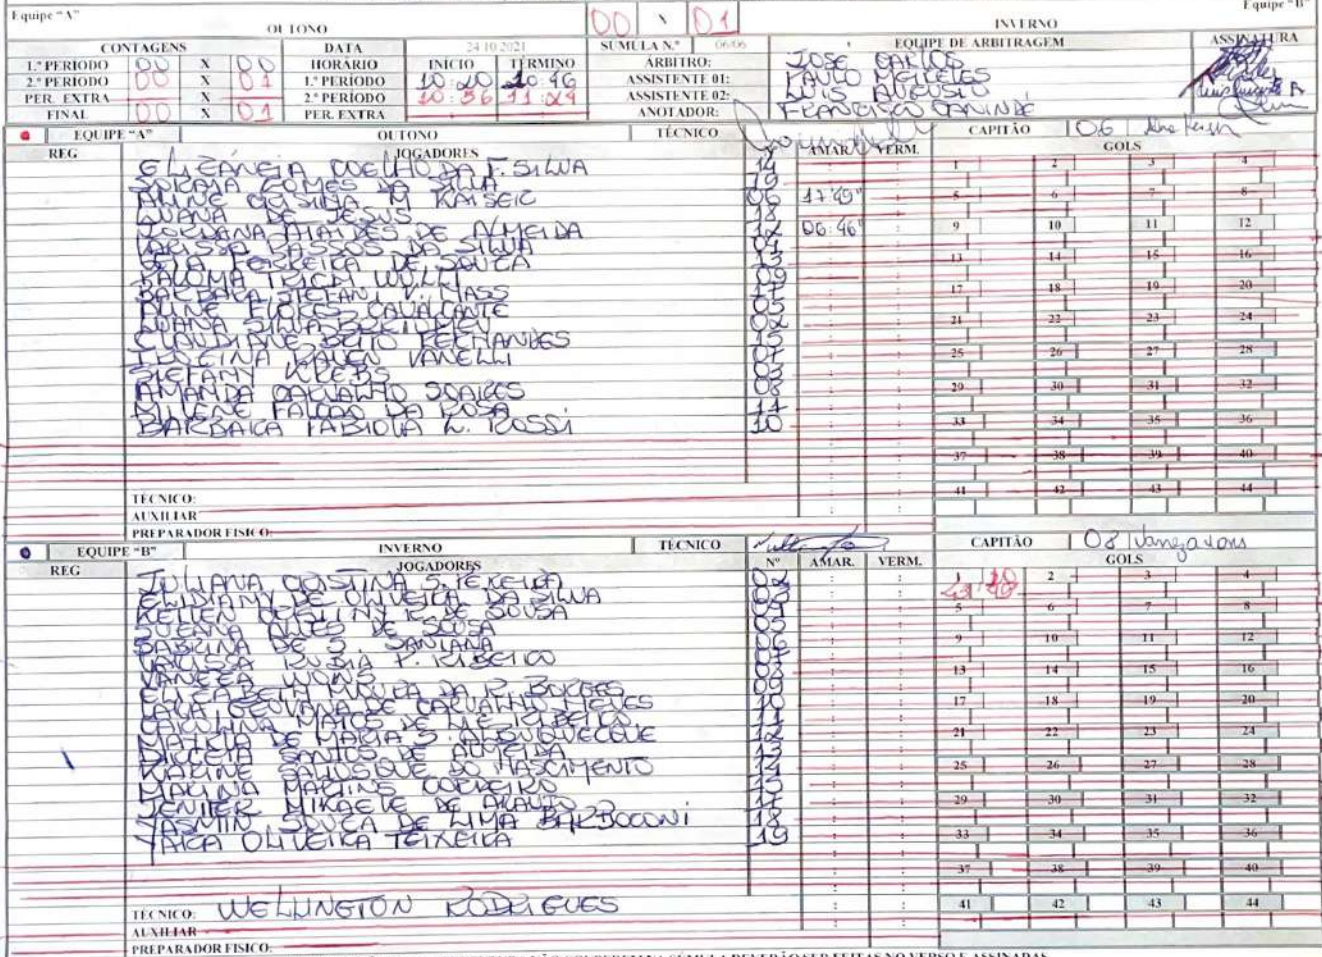 Equipe "A" OUTONO 00 X 01 INVERNO Equipe "B"
CONTAGENS DATA 24/10/2021 SÚMULA N.º 06/06 EQUIPE DE ARBITRAGEM ASSINATURA
1.º PERÍODO 00 X 00 HORÁRIO INÍCIO TÉRMINO ÁRBITRO: JOSE CARLOS
2.º PERÍODO 00 X 01 1.º PERÍODO 10:20 10:46 ASSISTENTE 01: PAULO MEIRELES
PER. EXTRA X 2.º PERÍODO 10:56 11:24 ASSISTENTE 02: LUIS AUGUSTO
FINAL 00 X 01 PER. EXTRA ANOTADOR: FRANCISCO CANINDÉ
EQUIPE "A" OUTONO TÉCNICO CAPITÃO 06
REG JOGADORES AMAR. VERM. GOLS
ELIZANGIA COELHO DA F. SILVA 14
SORAIA GOMES DA SILVA 19
ALINE CRISTINA M KAISER 06 17:49"
LUANA DE JESUS 18
JORDANA ATAIDES DE ALMEIDA 12 06:46"
LARISSA PASSOS DA SILVA 04
FERREIRA DE SOUZA 13
PALOMA 09
BARBARA STEFANI V. HASS 17
ALINE FLORES CAVALCANTE 05
LUANA SILVA 02
CLAUDIANE BRITO FERNANDES 15
VANELLI 07
STEFANY KREBS 03
AMANDA CARVALHO SOARES 08
MILENE FALCÃO DA ROSA 11
BARBARA FABIOLA L. ROSSI 10
1 2 3 4
5 6 7 8
9 10 11 12
13 14 15 16
17 18 19 20
21 22 23 24
25 26 27 28
29 30 31 32
33 34 35 36
37 38 39 40
41 42 43 44
TÉCNICO:
AUXILIAR
PREPARADOR FÍSICO:
EQUIPE "B" INVERNO TÉCNICO CAPITÃO 08
REG JOGADORES Nº AMAR. VERM. GOLS
JULIANA CRISTINA S. TEXEIRA 02
ELIDIANY DE OLIVEIRA DA SILVA 03
KELLEN R. DE SOUSA 04
SUERNA ALVES DE SOUSA 05
SABRINA DE S. SANTANA 06
LARISSA RUBIA P. RIBEIRO 07
VANEZA WONS 08
ELIZABETH MOURA DA R. BORGES 09
LARA GEOVANA DE CARVALHO NEVES 10
CAROLINA MATOS DE RIBEIRO 11
MARIA DE MARIA S. ALBUQUERQUE 12
DIRCEIA SANTOS DE ALMEIDA 13
KARINE SALUSTIQUE DO NASCIMENTO 14
MARINA MARTINS CORDEIRO 15
JENIFER MIKAELE DE ARAUJO 17
YASMIN SOUZA DE LIMA BARBOCONI 18
YARA OLIVEIRA TEIXEIRA 19
1 10 2 3 4
5 6 7 8
9 10 11 12
13 14 15 16
17 18 19 20
21 22 23 24
25 26 27 28
29 30 31 32
33 34 35 36
37 38 39 40
41 42 43 44
TÉCNICO: WELLINGTON RODRIGUES
AUXILIAR
PREPARADOR FÍSICO:
SÚMULA DEVERÃO SER FEITAS NO VERSO E ASSINADAS